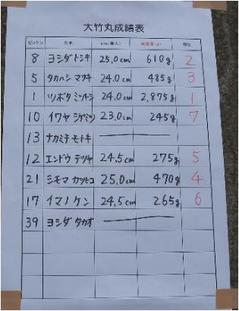 大竹丸成績表
ゼッケン 氏名 cm(最大) 総重量(g) 順位
8 ヨシダトシキ 25.0cm 610g 2
5 タカハシマサキ 24.0cm 485g 3
1 ツボタミツトシ 24.0cm 2,875g 1
10 イワヤシゲミツ 23.0cm 245g 7
13 ナカミチモトキ
12 エンドウテツヤ 24.5cm 275g 5
21 シモマカツトコ 25.0cm 470g 4
17 イマノケン 24.5cm 265g 6
39 ヨシダタカオ